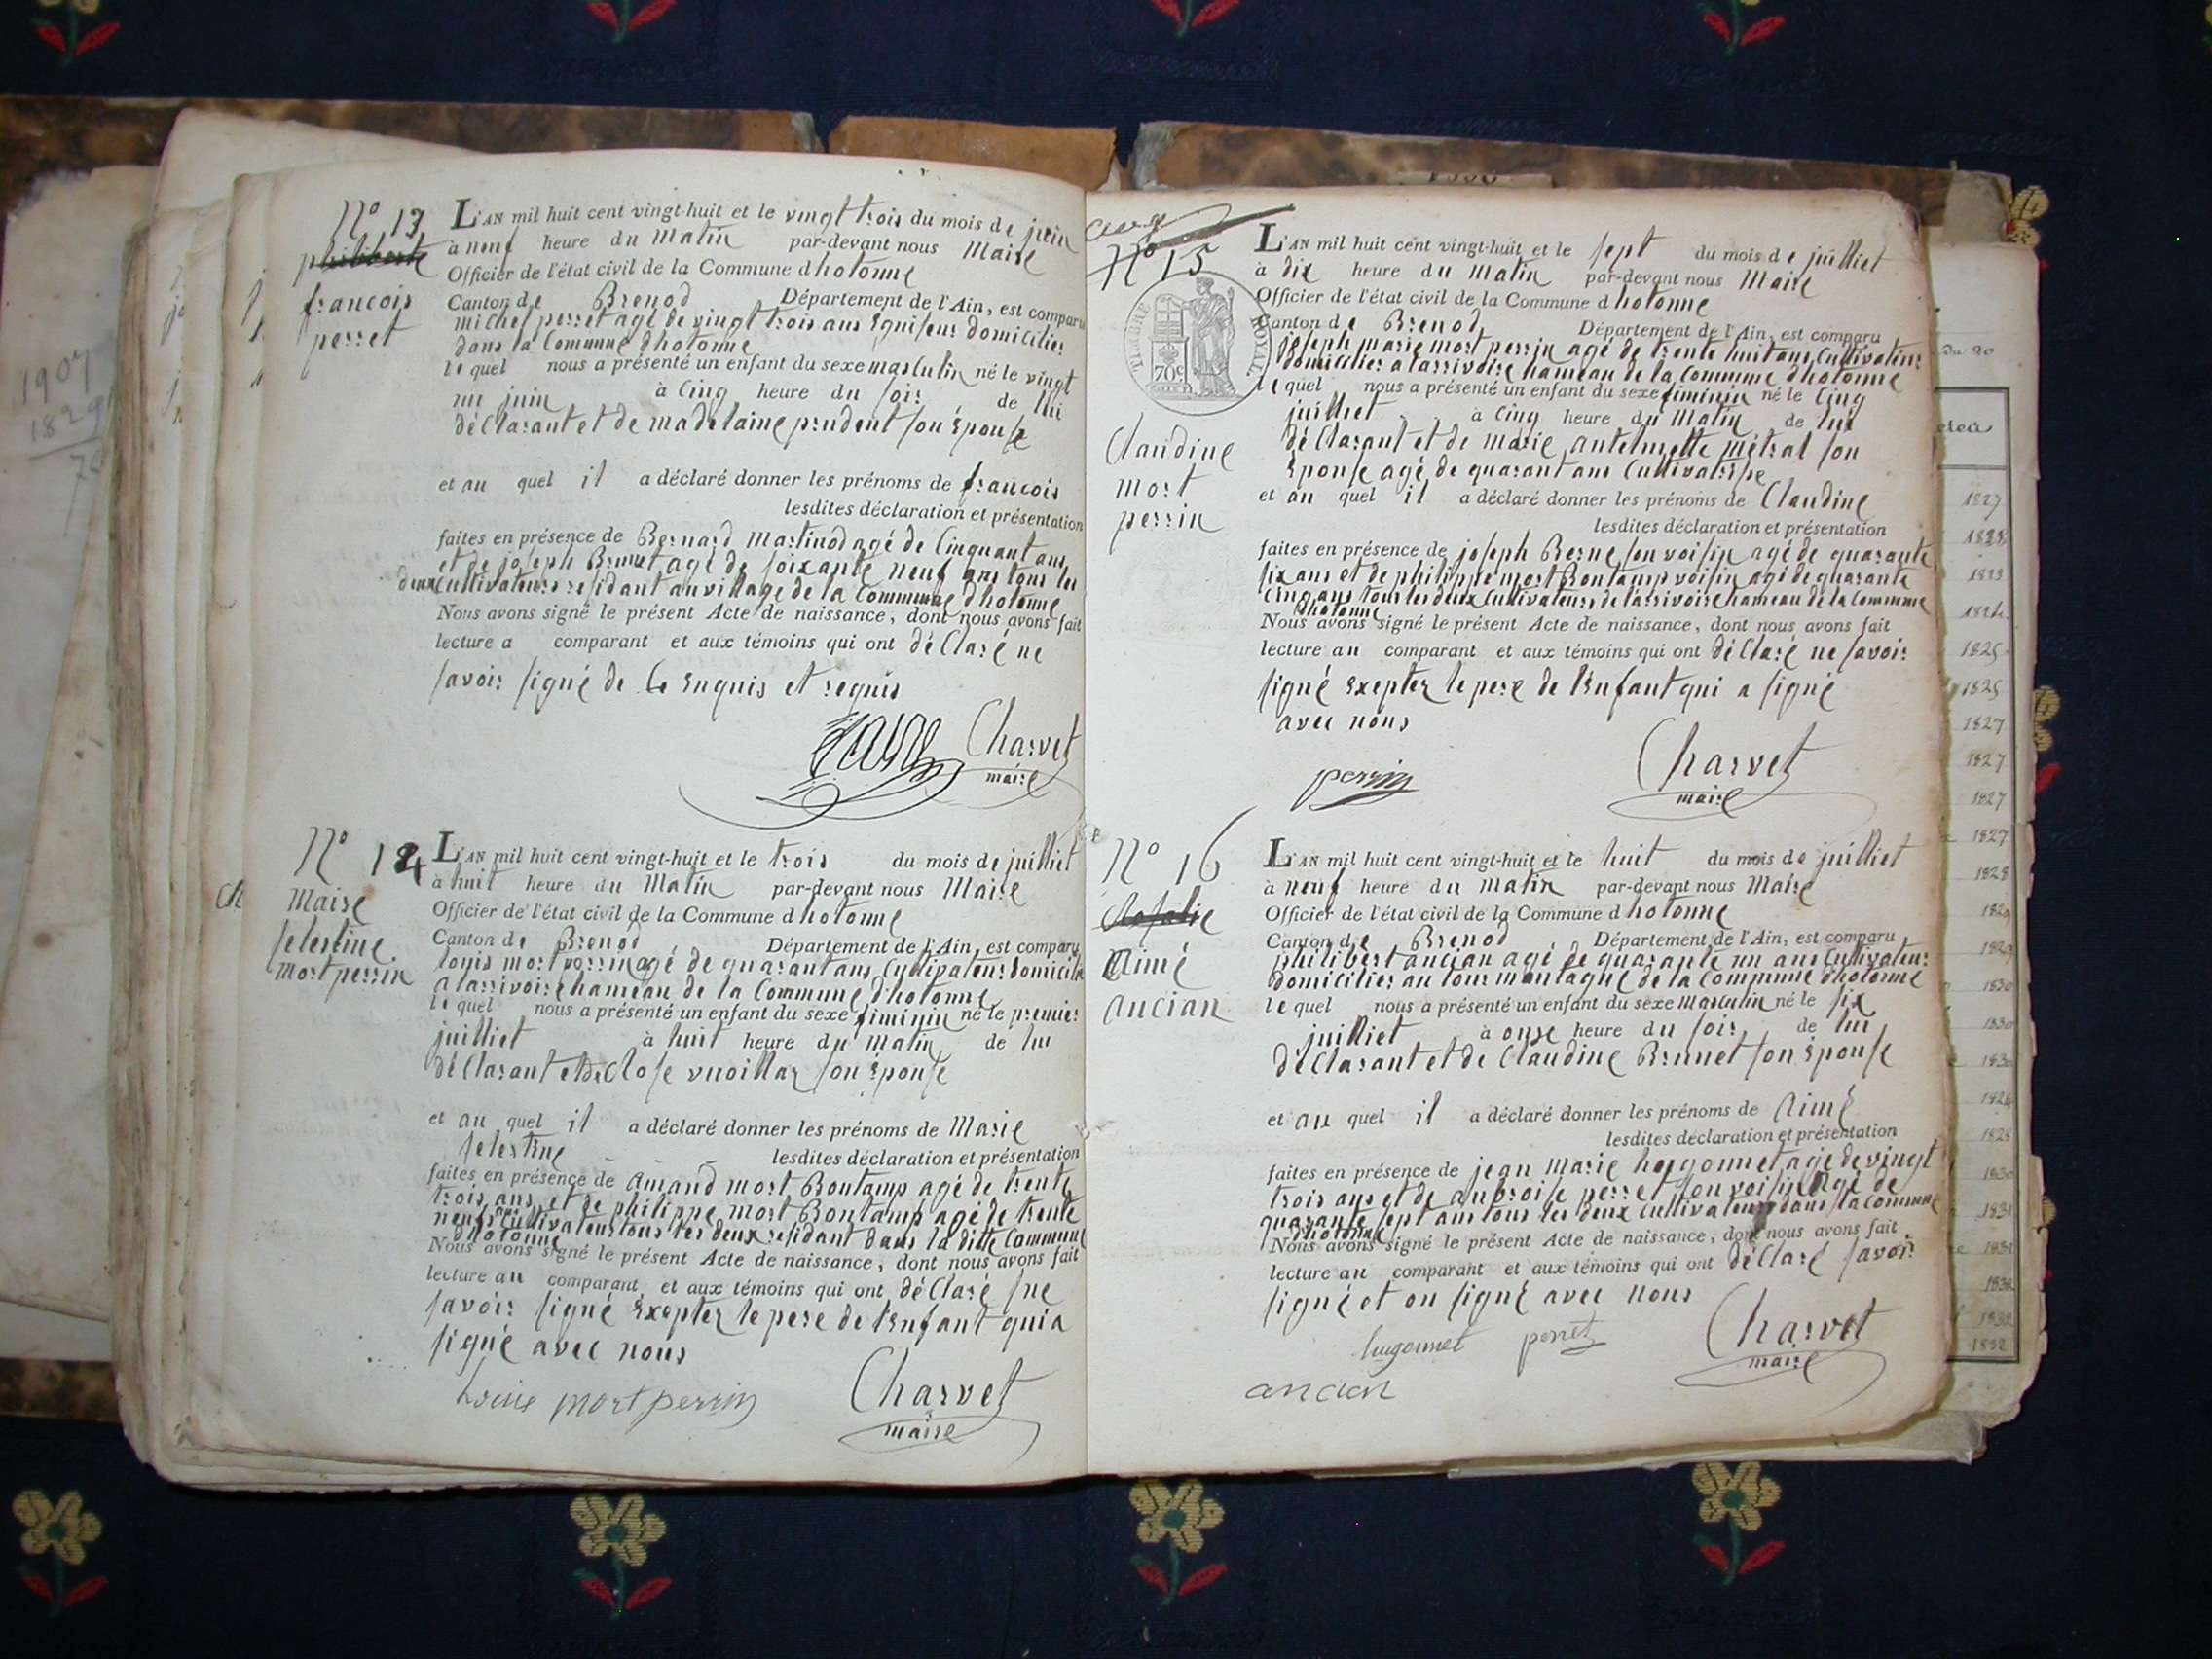 N° 13
philiberte
francois
perret
L'AN mil huit cent vingt-huit et le vingt trois du mois de juin
à neuf heure du matin par-devant nous Maire
Officier de l'état civil de la Commune d hotonne
Canton de Brenod Département de l'Ain, est comparu
michel perret agé de vingt trois ans domicilier
dans la Commune dhotonne
le quel nous a présenté un enfant du sexe masculin né le vingt
un juin à Cinq heure du soir de lui
déClarant et de madelaine prudent son Epouse
et au quel il a déclaré donner les prénoms de francois
lesdites déclaration et présentation
faites en présence de Bernard Martinod agé de Cinquant ans
et de joseph Brunet agé de soixante neuf ans tous les
deux Cultivateurs residant au village de la Commune dhotonne
Nous avons signé le présent Acte de naissance, dont nous avons fait
lecture a comparant et aux témoins qui ont déClaré ne
savoir signé de Ce Enquis et requis
Charvet
maire
N° 14
Marie
selestine
mort perrin
L'AN mil huit cent vingt-huit et le trois du mois de juilliet
à huit heure du Matin par-devant nous Maire
Officier de l'état civil de la Commune d hotonne
Canton de Brenod Département de l'Ain, est comparu
louis mort perrin agé de quarant ans Cultivateur domicilié
a larrivoire hameau de la Commune d'hotonne
le quel nous a présenté un enfant du sexe fiminin né le premier
juilliet à huit heure du matin de lui
déClarant et de Rose vuoillaz son Epouse
et au quel il a déclaré donner les prénoms de Marie
selestine lesdites déclaration et présentation
faites en présence de amand mort Bontamp agé de trente
trois ans et de philippe mort Bontamp agé de trente
neuf ans Cultivateur tous les deux residant dans la ditte Commune
dhotonne
Nous avons signé le présent Acte de naissance, dont nous avons fait
lecture au comparant et aux témoins qui ont déClaré ne
savoir signé Exepter le pere de lEnfant qui a
signé avec nous
Louis mort perrin Charvet
maire
N° 15
TIMBRE ROYAL
70c
Claudine
mort
perrin
L'AN mil huit cent vingt-huit et le sept du mois de juilliet
à dix heure du matin par-devant nous Maire
Officier de l'état civil de la Commune d hotonne
Canton de Brenod Département de l'Ain, est comparu
joseph marie mort perrin agé de trente huit ans Cultivateur
domicilier a larrivoire hameau de la Commune dhotonne
le quel nous a présenté un enfant du sexe fiminin né le Cinq
juilliet à Cinq heure du Matin de lui
déClarant et de marie antelmette métral son
Epouse agé de quarant ans Cultivatrise
et au quel il a déclaré donner les prénoms de Claudine
lesdites déclaration et présentation
faites en présence de joseph Berne son voisin agé de quarante
six ans et de philippe mort Bontamp voisin agé de quarante
Cinq ans tous les deux Cultivateurs de larrivoire hameau de la Commune
dhotonne
Nous avons signé le présent Acte de naissance, dont nous avons fait
lecture au comparant et aux témoins qui ont déClaré ne savoir
signé Exepter le pere de lEnfant qui a signé
avec nous
perrin Charvet
maire
N° 16
Aimé
ancian
L'AN mil huit cent vingt-huit et le huit du mois de juilliet
à neuf heure du matin par-devant nous Maire
Officier de l'état civil de la Commune d hotonne
Canton de Brenod Département de l'Ain, est comparu
philibert ancian agé de quarante un ans Cultivateur
domicilier au lour montagne de la Commune d'hotonne
le quel nous a présenté un enfant du sexe masculin né le six
juilliet à onse heure du soir de lui
déClarant et de Claudine Brunet son Epouse
et au quel il a déclaré donner les prénoms de Aimé
lesdites déclaration et présentation
faites en présence de jean marie hugonnet agé de vingt
trois ans et de anbroise perret son voisin agé de
quarante sept ans tous les deux Cultivateurs dans la Commune
dhotonne
Nous avons signé le présent Acte de naissance, dont nous avons fait
lecture au comparant et aux témoins qui ont déClaré savoir
signé et on signé avec nous
hugonnet perret Charvet
maire
ancian
1907
1829
1827
1828
1825
1827
1827
1827
1827
1828
1829
1829
1830
1830
1830
1830
1831
1831
1832
1832